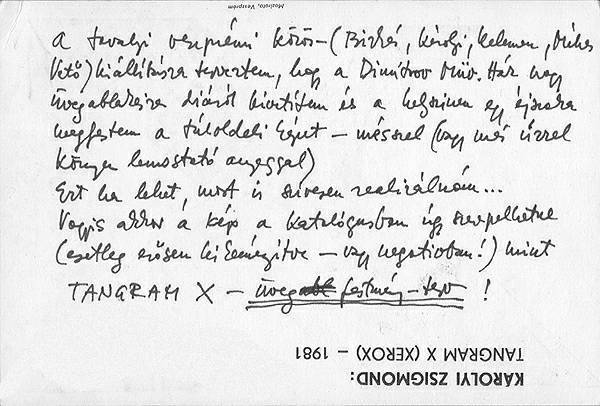 Mozirota, Veszprém
A tavalyi veszprémi közös – (Birkás, Károlyi, Kelemen, Méhes
Vető) kiállításra terveztem, hogy a Dimitrov Műv. Ház nagy
üvegablakaira diáról kivetítem és a helyszínen egy éjszaka
megfestem a túloldali képet – mésszel (vagy más vízzel
könnyen lemosható anyaggal)
Ezt ha lehet, most is szívesen realizálnám...
Vagyis akkor a kép a katalógusban úgy szerepelhetne
(esetleg erősen – vagy negatívban!) mint
TANGRAM X – üveg festmény – terv !
KÁROLYI ZSIGMOND:
TANGRAM X (XEROX) – 1981